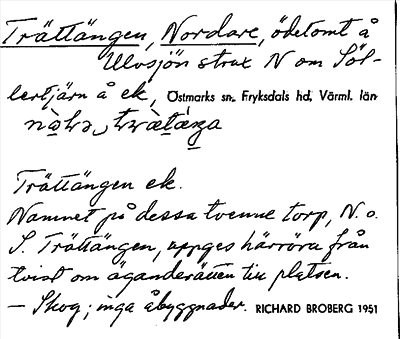 Trättängen, Nordare, ödetomt å
Ulvsjön strax N om Söl-
lertjärn å ek, Östmarks sn. Fryksdals hd, Värml. län
Trättängen ek.
Namnet på dessa tvenne torp, N. o.
S. Trättängen, uppges härröra från
tvist om äganderätten till platsen.
— Skog; inga åbyggnader. RICHARD BROBERG 1951